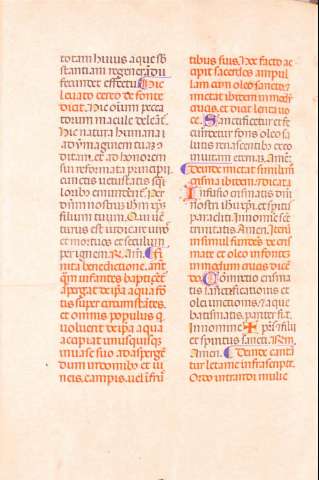 totam huius aque sb
stantiam regenerandi
fecundet effectu. Hic
leuato cereo de fonte
dicit. Hic oium pecca
torum macule deleant̉.
Hic natura humana i
ad ymaginem tuā ɔ̄
dita. et ad honorem
sui reformata principii.
cunctis uetustatis squa
loribus emundet̉. Per
dn̄m nostrum ihm xpm
filium tuum. Qui uē
turus est iudicare uiuos
et mortuos et seculum
per ignem. R. Am̄. Fi
nita benedictione. ant
quam infantes baptiçēt̉
aspergat de ipa aqua fō
tis super circumstantes.
et omnis populus q
uoluerit de ipa aqua
accipiat unusquisque
in uase suo ad aspergē
dum in domibus et ui
neis. campis. uel fructi
tibus suis. Hec facto ac
cipit sacerdos ampul
lam cum oleo sancto. et
mictat ibi tem in modū
crucis. et dicat lenta uo
ce. Sanctificetur et fe
cundetur fons oleo sa
lutis renascentibus ex eo
in uitam eternā. Am̄.
Deinde mictat similiter
crisma ibi tem et dicat
Infusio crismatis dn̄i
nostri ihu xpi. et spūs
paracliti. In nomine scē
trinitatis. Amen. Iterū
insimul fundens de cris
mate et oleo in fontes
in modum crucis dicē
do. Comixtio crisma
tis sanctificationis et
olei unctionis. et aque
batismatis. pariter fiat.
In nomine + pris et filii
et spiritus sancti. R. Am
Amen. Deinde canta
tur letanie infrascripte.
Ordo intrandi mulie